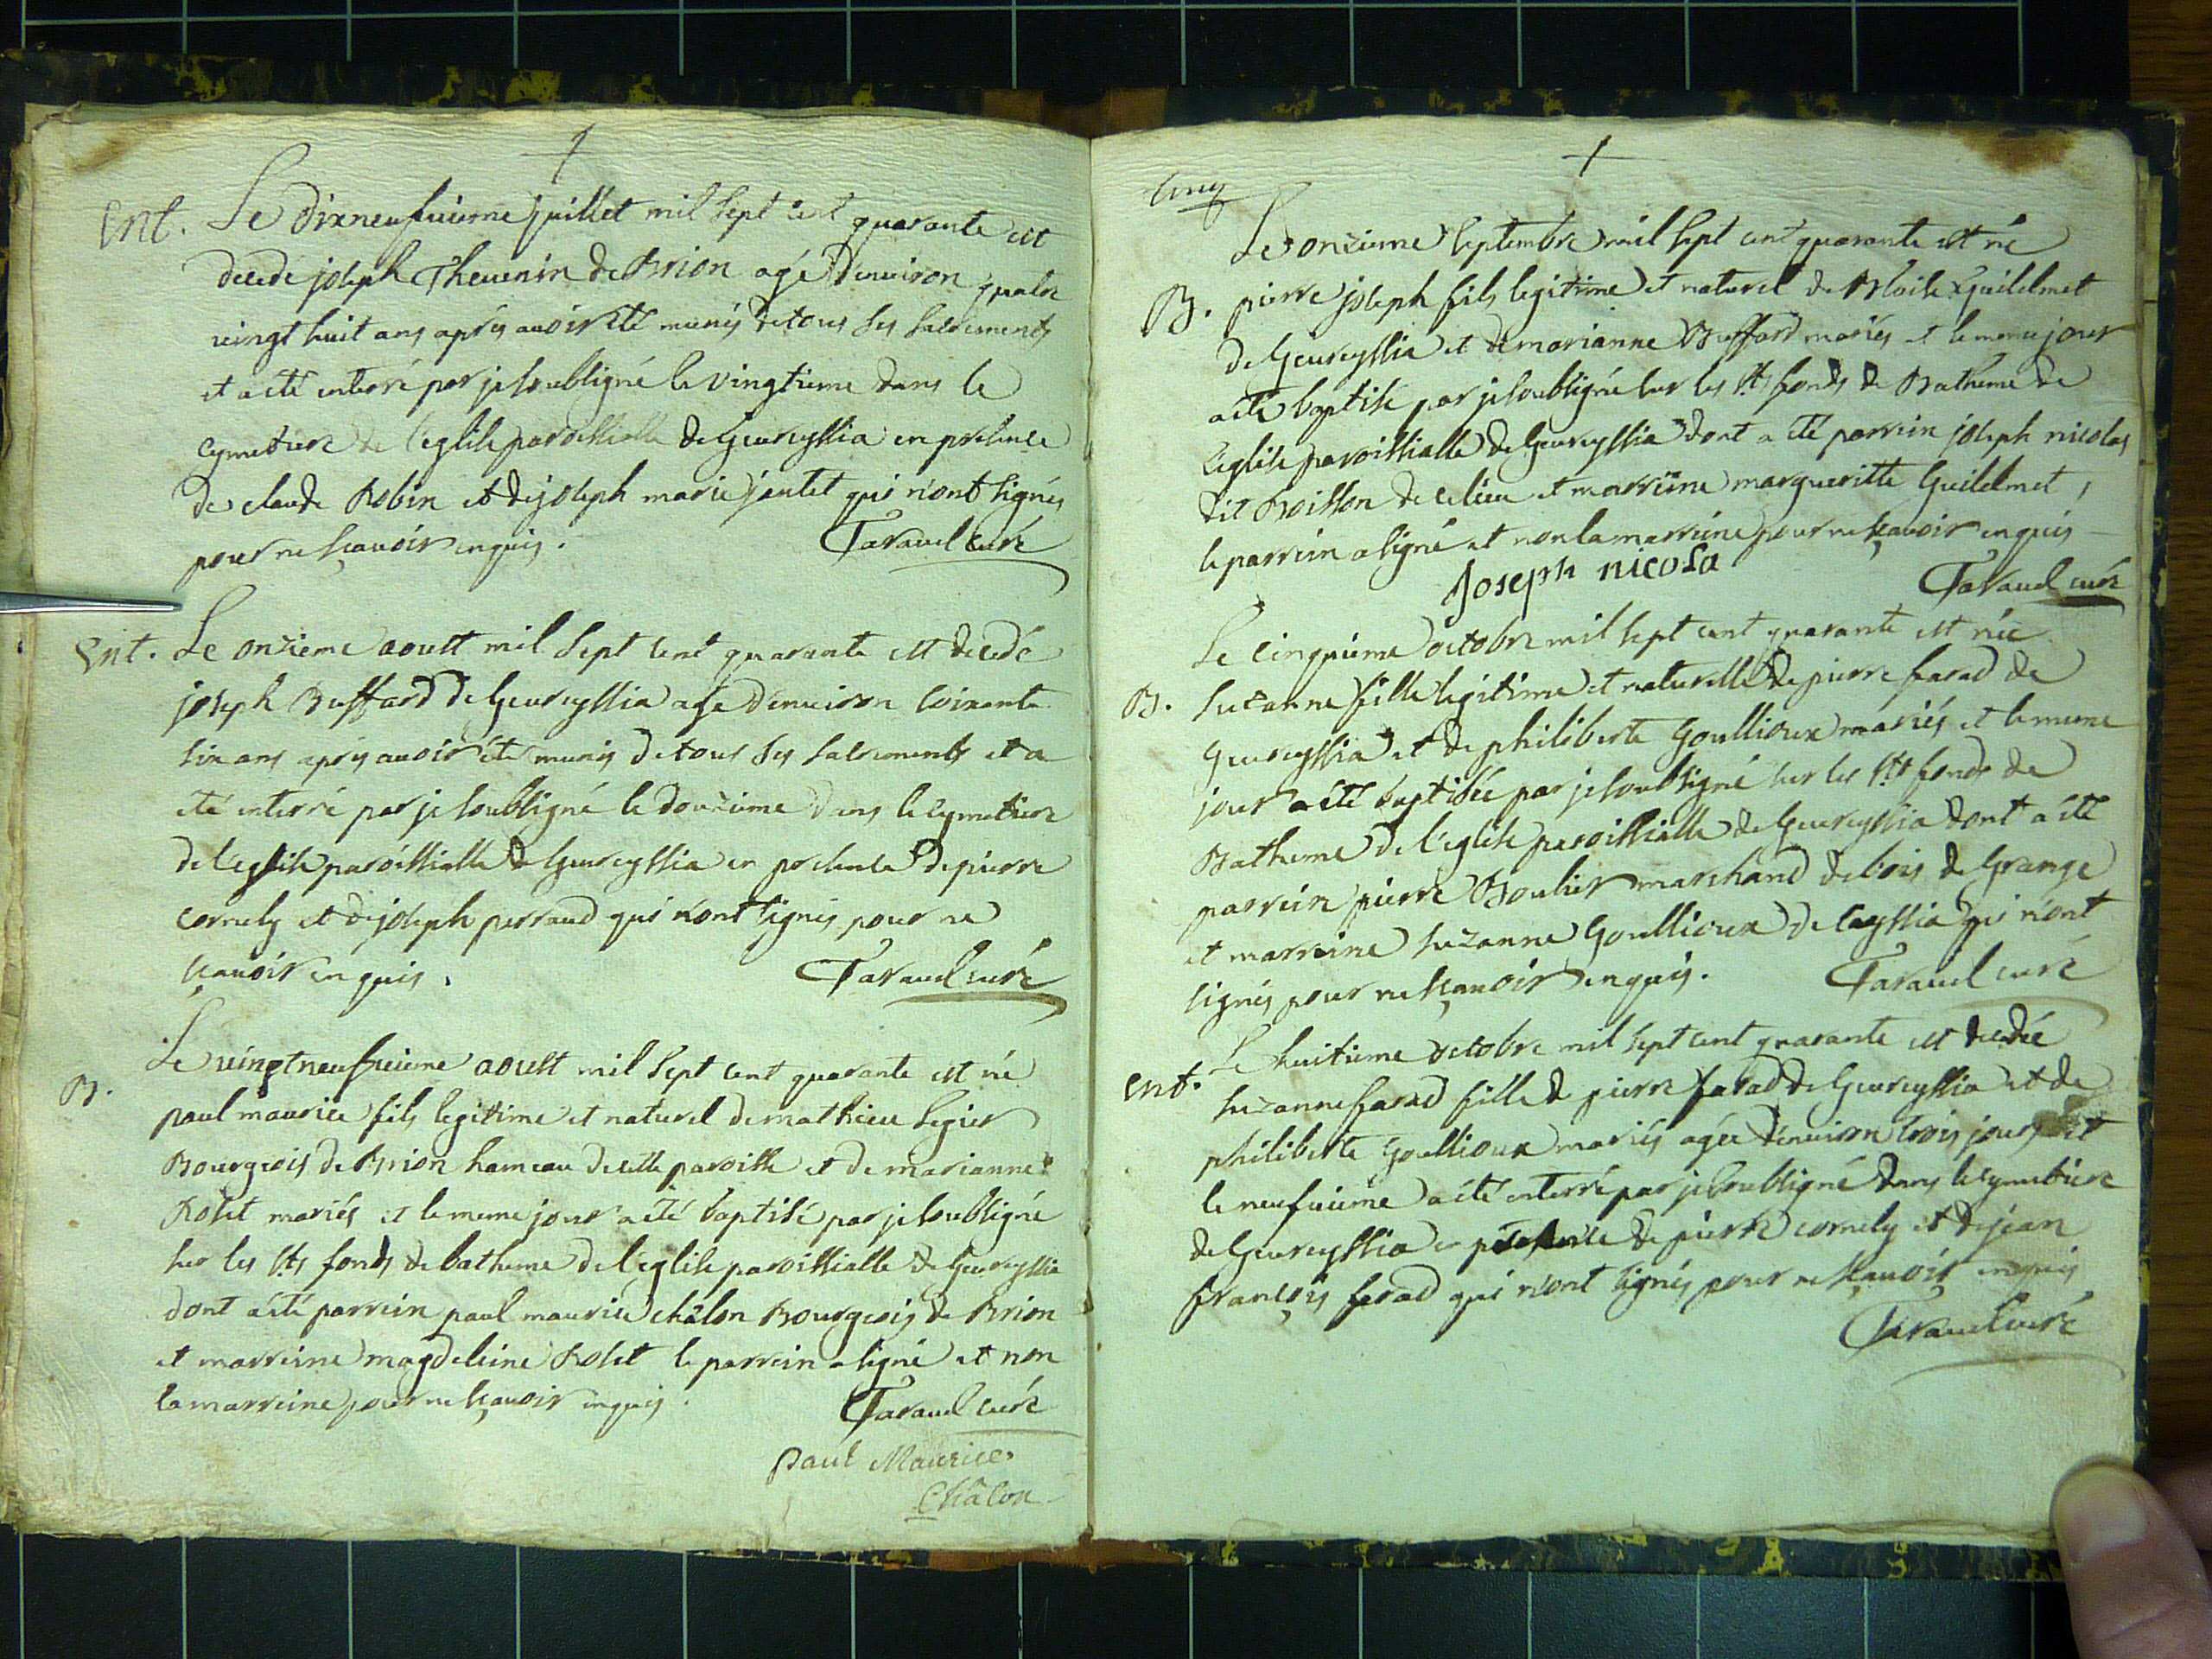 Ent. Le dixneufuieme juillet mil sept cent quarante est
decedé joseph Thevenin de Brion agé d'environ quatre
vingt huit ans après avoir été munis de tous ses sacrements
et a été enterré par je soubsigné le vingtieme dans le
cymetiere de l'eglise paroissialle de Geureyssia en presence
de claude Robin et de joseph marie jantet qui n'ont signés
pour ne sçavoir enquis. Taravel curé
Ent. Le onzieme aoust mil sept cent quarante est decedé
joseph Buffard de Geureyssia agé d'environ soixante
six ans après avoir été munis de tous ses sacrements et a
été enterré par je soubsigné le douzieme dans le cymetiere
de l'eglise paroissialle de Geureyssia en presence de pierre
cornely et de joseph perraud qui n'ont signés pour ne
sçavoir enquis. Taravel curé
Le vingtneufuieme aoust mil sept cent quarante est né
B. paul maurice fils legitime et naturel de mathieu
Bourgeois de Brion hameau de cette paroisse et de marianne
Rolet mariés et le meme jour a été baptisé par je soubsigné
sur les sts fonds de batheme de l'eglise paroissialle de Geureyssia
dont a été parrein paul maurice châlon Bourgeois de Brion
et marreine magdeleine Rolet le parrein a signé et non
la marreine pour ne sçavoir enquis. Taravel curé
paul Maurice
Châlon
cinq
Le onzieme septembre mil sept cent quarante est né
B. pierre joseph fils legitime et naturel de Guilelmet
de Geureyssia et de marianne Buffard mariés et le meme jour
a été baptisé par je soubsigné sur les sts fonds de Batheme de
l'eglise paroissialle de Geureyssia dont a été parrein joseph nicolas
dit Boisson de ce lieu et marreine margueritte Guilelmet,
le parrein a signé et non la marreine pour ne sçavoir enquis
Joseph nicola Taravel curé
Le cinquieme octobre mil sept cent quarante est née
B. suzanne fille legitime et naturelle de pierre farad de
Geureyssia et de philiberte Goullioux mariés et le meme
jour a été baptisée par je soubsigné sur les sts fonds de
Batheme de l'eglise paroissialle de Geureyssia dont a été
parrein pierre Boulier marchand de bois de Grange
et marreine suzanne Goullioux de Ceyssia qui n'ont
signés pour ne sçavoir enquis. Taravel curé
Le huitieme octobre mil sept cent quarante est decedée
Ent. suzanne farad fille de pierre farad de Geureyssia et de
philiberte Goullioux mariés agée d'environ trois jours et
le neufuieme a été enterré par je soubsigné dans le cymetiere
de Geureyssia en presence de pierre cornely et de jean
françois farad qui n'ont signés pour ne sçavoir enquis
Taravel curé